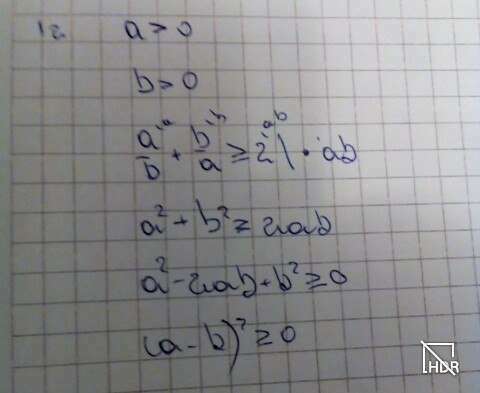 1a. a > 0
b > 0
a/b + b/a ≥ 2 | · ab
a² + b² ≥ 2ab
a² - 2ab + b² ≥ 0
(a - b)² ≥ 0
HDR